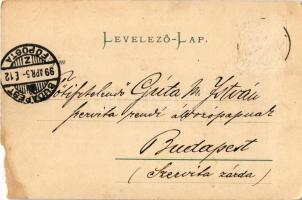 LEVELEZŐ-LAP.
BUDAPEST
99 APR 5 - E 12
FŐPOSTA
Főtisztelendő Gréta M. István
servita rendi áldozópapnak
Budapest
(Szervita zárda)